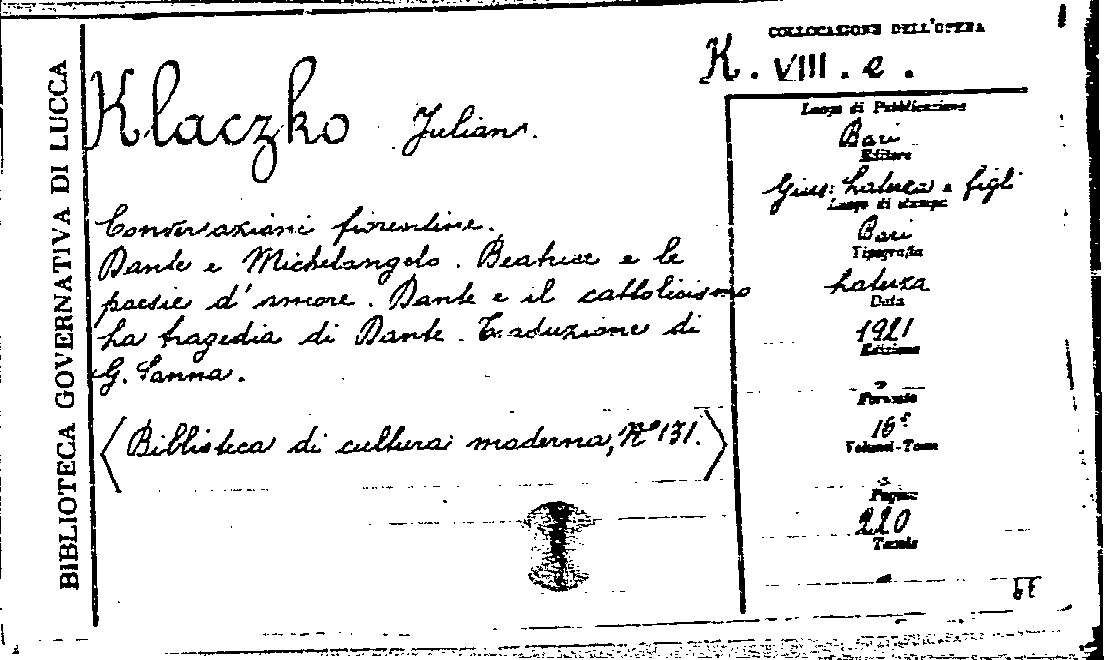 BIBLIOTECA GOVERNATIVA DI LUCCA
Klaczko Julian.
Conversazioni fiorentine.
Dante e Michelangelo. Beatrice e le
poesie d'amore. Dante e il cattolicismo
La tragedia di Dante. Traduzione di
G. Sanna.
〈Biblioteca di cultura moderna, N° 131.〉
COLLOCAZIONE DELL'OPERA
K. VIII. e.
Luogo di Pubblicazione
Bari
Editore
Gius: Laterza e figli
Luogo di stampa
Bari
Tipografia
Laterza
Data
1921
Edizione
Formato
16°
Volumi - Tomo
Pagine
220
Tavole